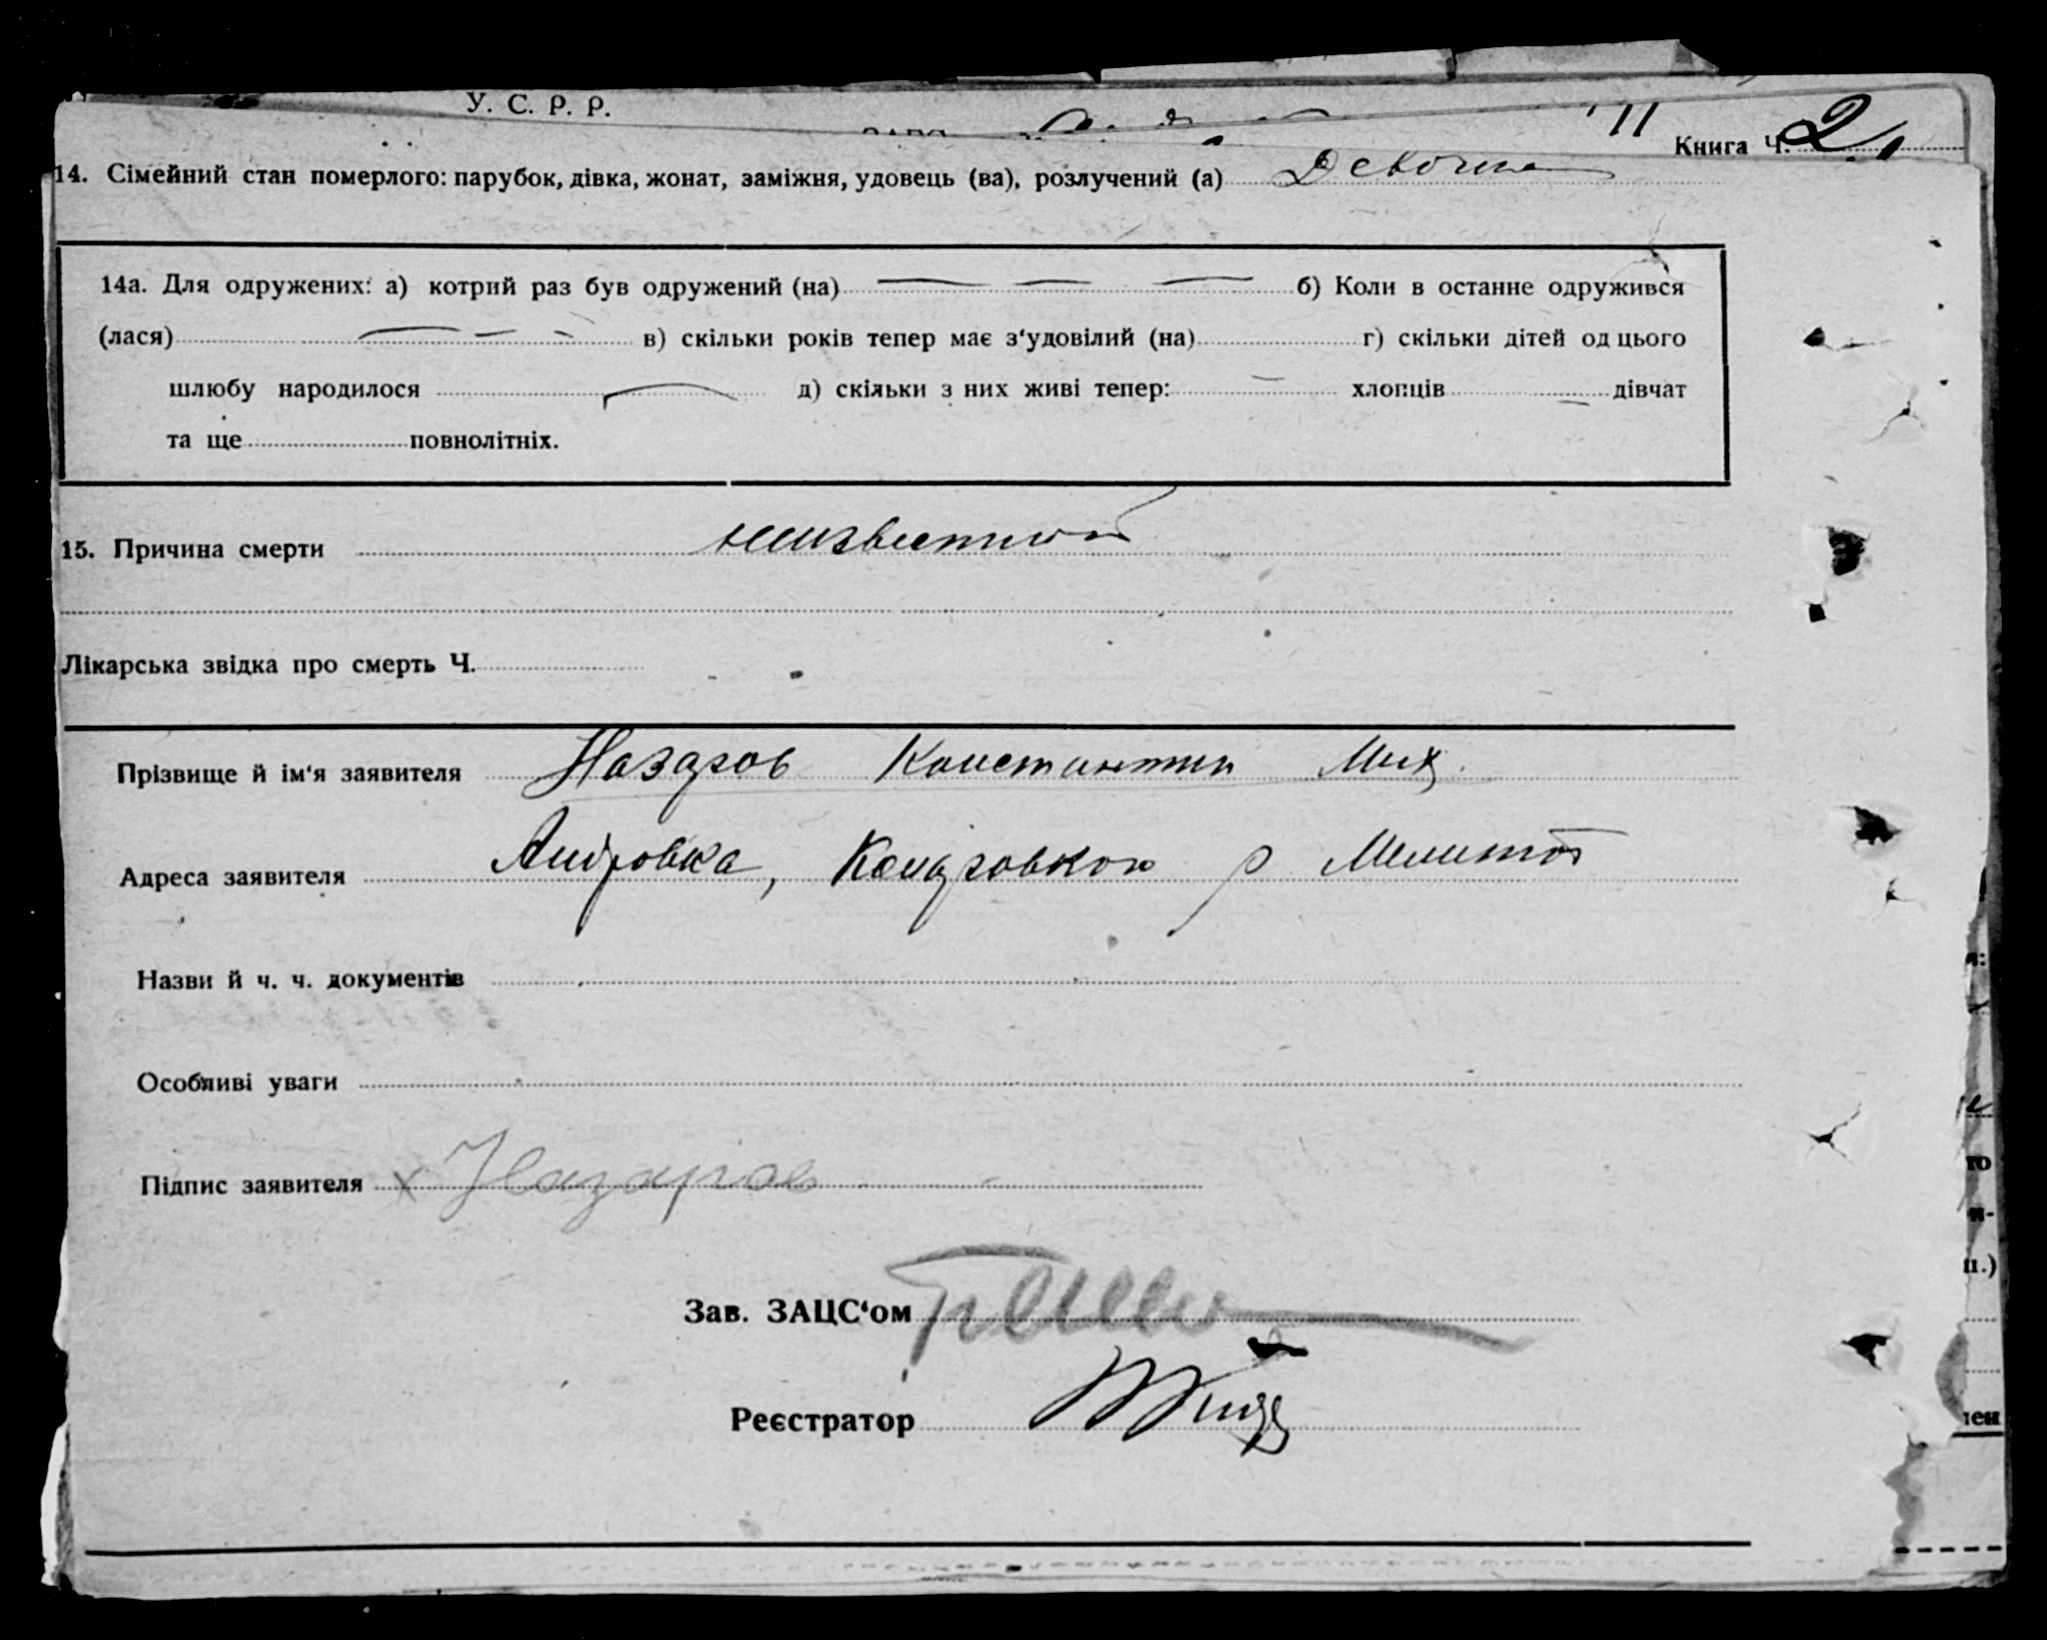 У. С. Р. Р.
11
Книга Ч. 2
14. Сімейний стан померлого: парубок, дівка, жонат, заміжня, удовець (ва), розлучений (а) Девочка
14а. Для одружених: а) котрий раз був одружений (на) — — — б) Коли в останнє одружився
(лася) — — — в) скільки років тепер має з‘удовілий (на) г) скільки дітей од цього
шлюбу народилося — д) скільки з них живі тепер: — хлопців — дівчат
та ще повнолітніх.
15. Причина смерти неизвестной
Лікарська звідка про смерть Ч.
Прізвище й ім‘я заявителя Назаров Константин Мих.
Адреса заявителя р Мелитоп
Назви й ч. ч. документів
Особливі уваги
Підпис заявителя х Назаров
Зав. ЗАЦС‘ом
Реєстратор